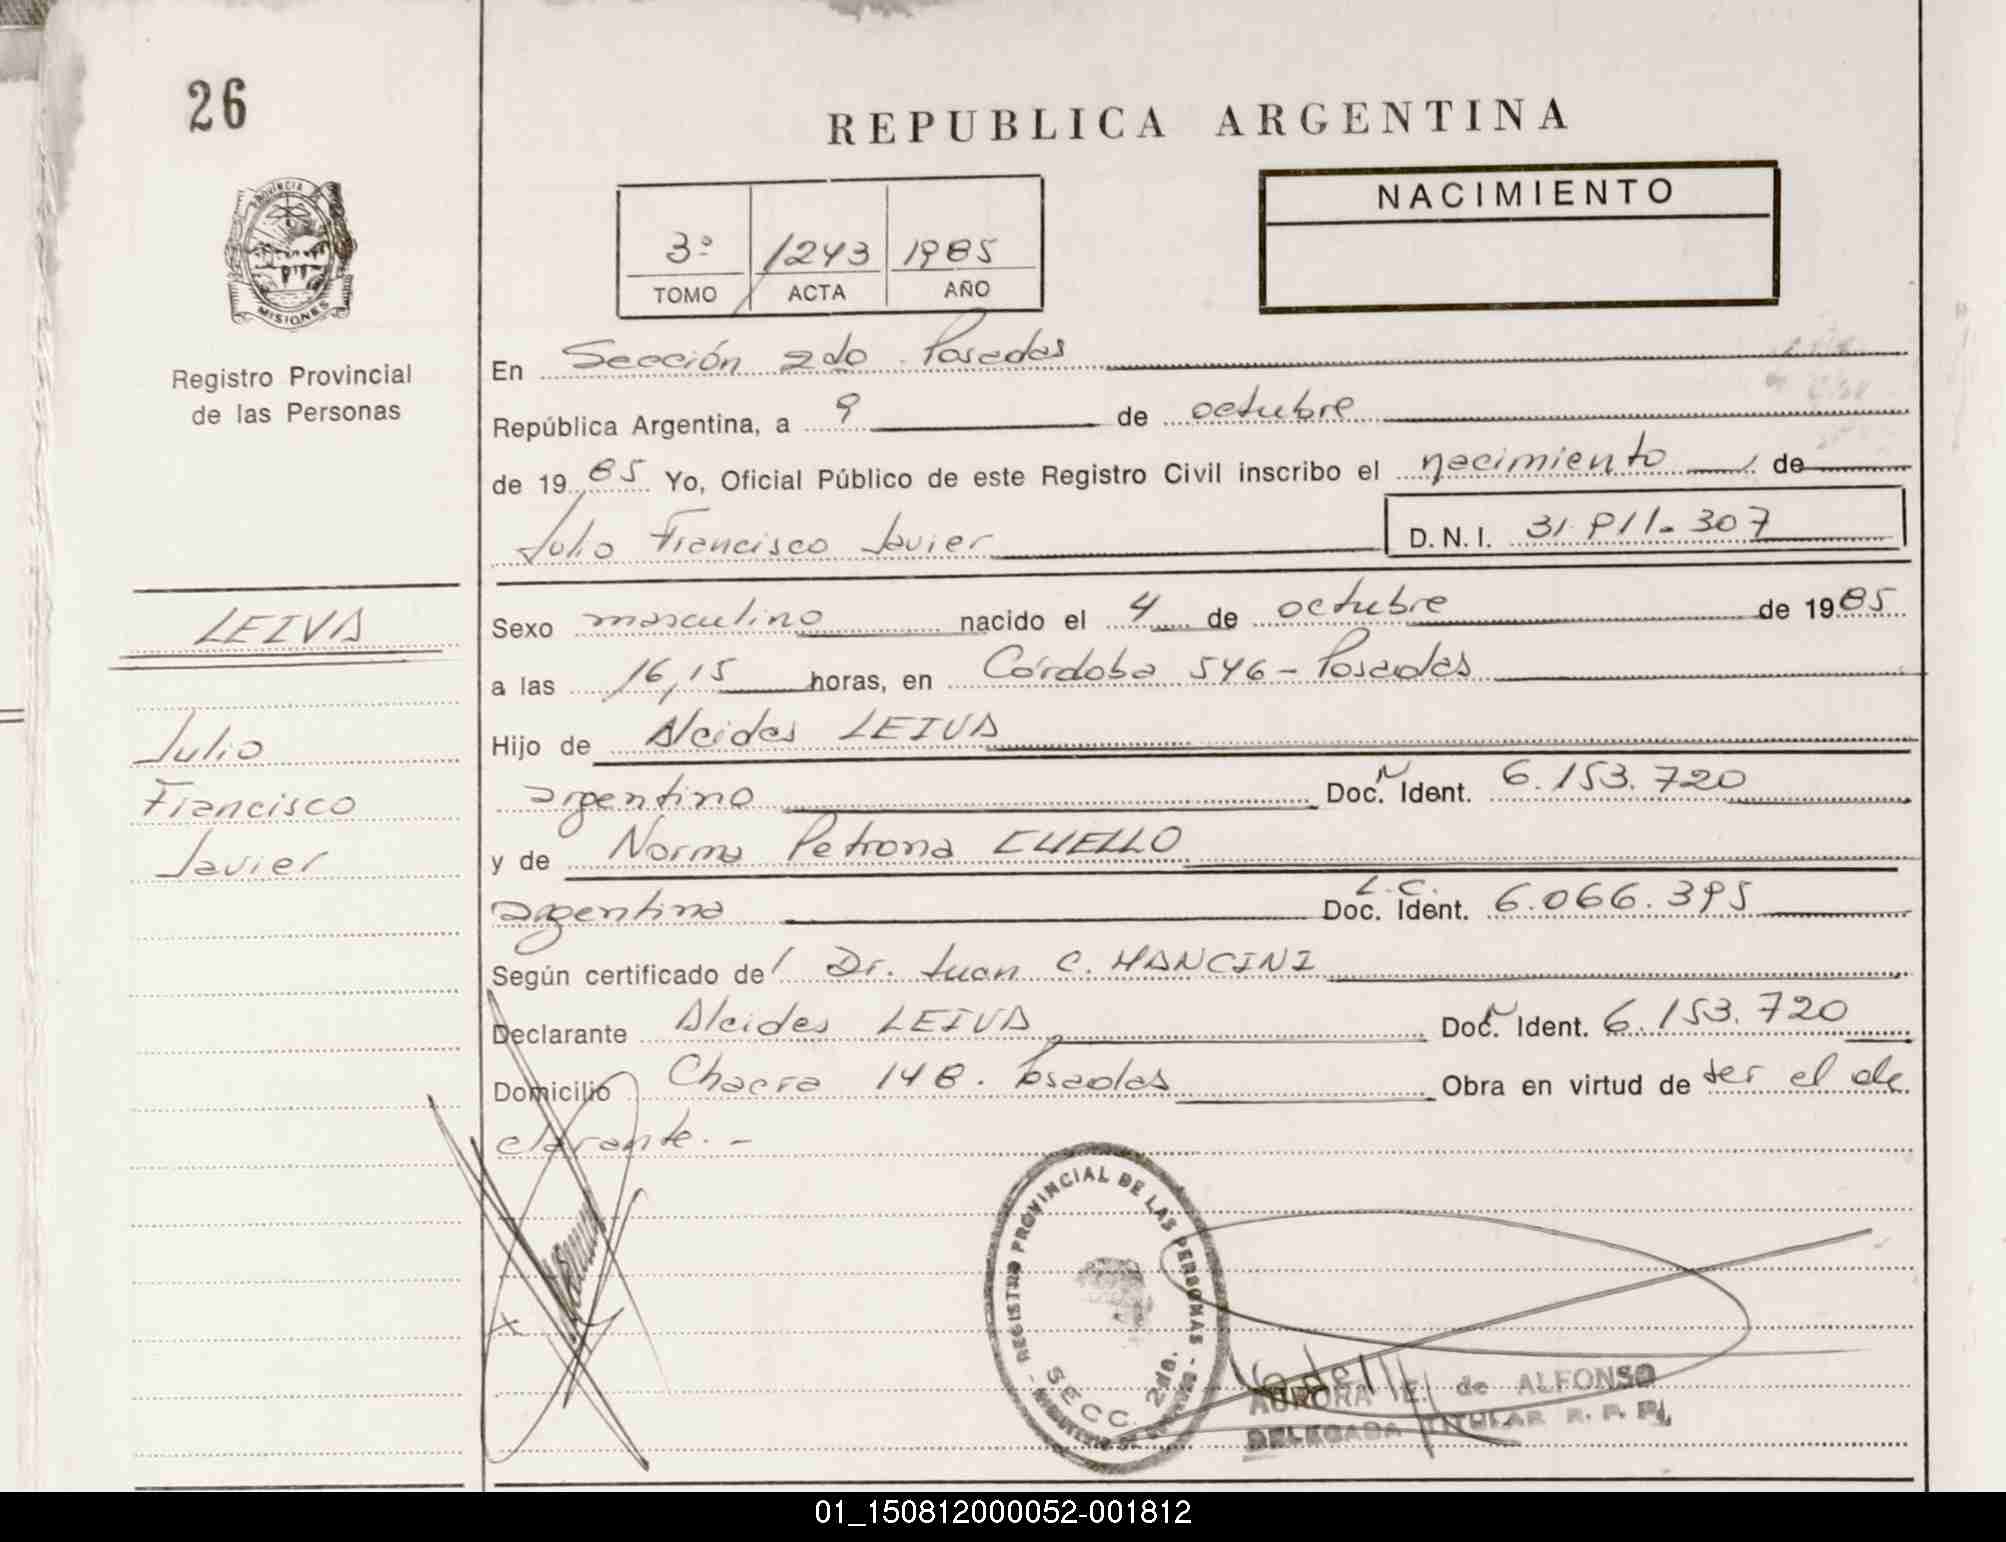 26
REPUBLICA ARGENTINA
PROVINCIA
MISIONES
Registro Provincial
de las Personas
3º 1243 1985
TOMO ACTA AÑO
NACIMIENTO
En Sección 2do. Posadas
República Argentina, a 9 de octubre
de 1985 Yo, Oficial Público de este Registro Civil inscribo el nacimiento de
Julio Francisco Javier D.N.I. 31.911.307
LEIVA
Julio
Francisco
Javier
Sexo masculino nacido el 4 de octubre de 1985
a las 16,15 horas, en Córdoba 546 - Posadas
Hijo de Alcides LEIVA
argentino Doc. Ident. 6.153.720
y de Norma Petrona CUELLO
argentina L.C. Doc. Ident. 6.066.395
Según certificado del Dr. Juan C. MANCINI
Declarante Alcides LEIVA Doc. Ident. 6.153.720
Domicilio Chacra 148. Posadas Obra en virtud de ser el de
clarante. -
REGISTRO PROVINCIAL DE LAS PERSONAS
SECC. 2da.
AURORA E. de ALFONSO
DELEGADA TITULAR R. P. P.
01_150812000052-001812